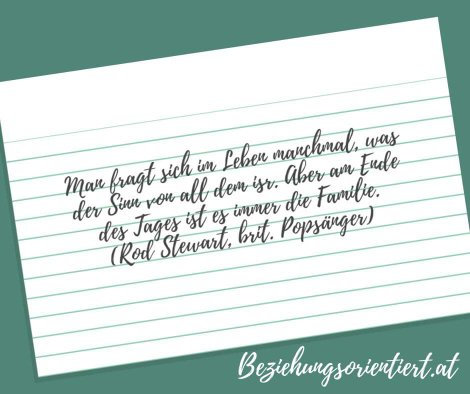 Man fragt sich im Leben manchmal, was
der Sinn von all dem isr. Aber am Ende
des Tages ist es immer die Familie.
(Rod Stewart, brit. Popsänger)
Beziehungsorientiert.at